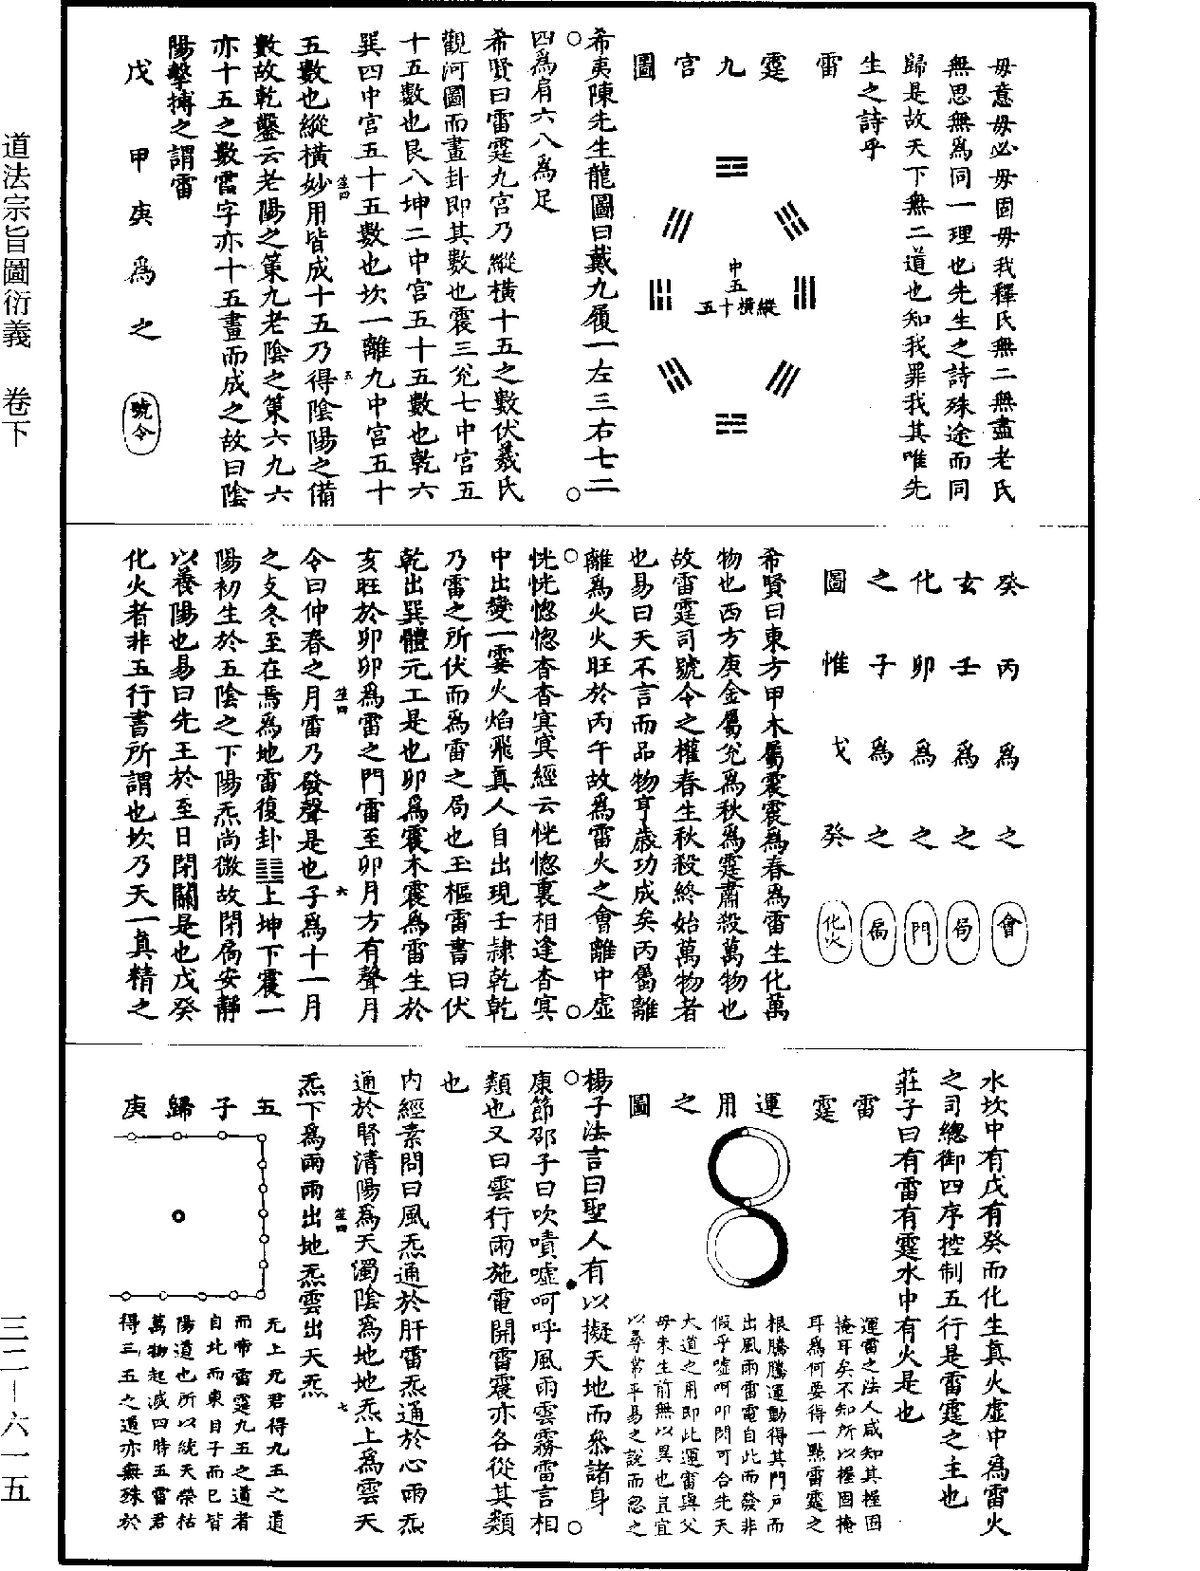 道法宗旨圖衍義　卷下
三二—六一五
毋意毋必毋固毋我釋氏無二無盡老氏
無思無為同一理也先生之詩殊途而同
歸是故天下無二道也知我罪我其唯先
生之詩乎
雷
霆九宮圖
中五
縱橫十五
希夷陳先生龍圖曰戴九履一左三右七二
四為肩六八為足
希賢曰雷霆九宮乃縱橫十五之數伏羲氏
觀河圖而畫卦即其數也震三兊七中宮五
十五數也艮八坤二中宮五十五數也乾六
巽四中宮五十五數也坎一離九中宮五十
五數也縱橫妙用皆成十五乃得陰陽之備
數故乾鑿云老陽之策九老陰之策六九六
亦十五之數雷字亦十五畫而成之故曰陰
陽擊搏之謂雷
戊甲庚為之號令
癸丙為之會
玄壬為之局
化卯為之門
之子為之扃
圖惟戊癸化火
希賢曰東方甲木屬震震為春為雷生化萬
物也西方庚金屬兊為秋為霆肅殺萬物也
故雷霆司號令之權春生秋殺終始萬物者
也易曰天不言而品物亨歲功成矣丙屬離
離為火火旺於丙午故為雷火之會離中虛
恍恍惚惚杳杳冥冥經云恍惚裏相逢杳冥
中出變一霎火焰飛真人自出現壬隷乾乾
乃雷之所伏而為雷之局也玉樞雷書曰伏
乾出巽體元工是也卯為震木震為雷生於
亥旺於卯卯為雷之門雷至卯月方有聲月
令曰仲春之月雷乃發聲是也子為十一月
之攴冬至在焉為地雷復卦䷗上坤下震一
陽初生於五陰之下陽炁尚微故閉扃安靜
以養陽也易曰先王於至日閉關是也戊癸
化火者非五行書所謂也坎乃天一真精之
水坎中有戊有癸而化生真火虛中為雷火
之司總御四序控制五行是雷霆之主也
莊子曰有雷有霆水中有火是也
雷霆
運用之圖
運雷之法人咸知其握固
掩耳矣不知所以握固掩
耳為何要得一點雷霆之
根騰騰運動得其門戶而
出風雨雷電自此而發非
假乎噓呵叩閃可合先天
大道之用即此運雷與父
母未生前無以異也豈宜
以尋常平易之說而忽之
楊子法言曰聖人有以擬天地而叅諸身
康節邵子曰吹噴噓呵呼風雨雲霧雷言相
類也又曰雲行雨施電開雷震亦各從其類
也
内經素問曰風炁通於肝雷炁通於心雨炁
通於腎清陽為天濁陰為地地炁上為雲天
炁下為雨雨出地炁雲出天炁
五子歸庚
元上元君得九五之道
而帝雷霆九五之道者
自北而東目子而巳皆
陽道也所以統天榮枯
萬物起滅四時五雷君
得三五之道亦無殊於